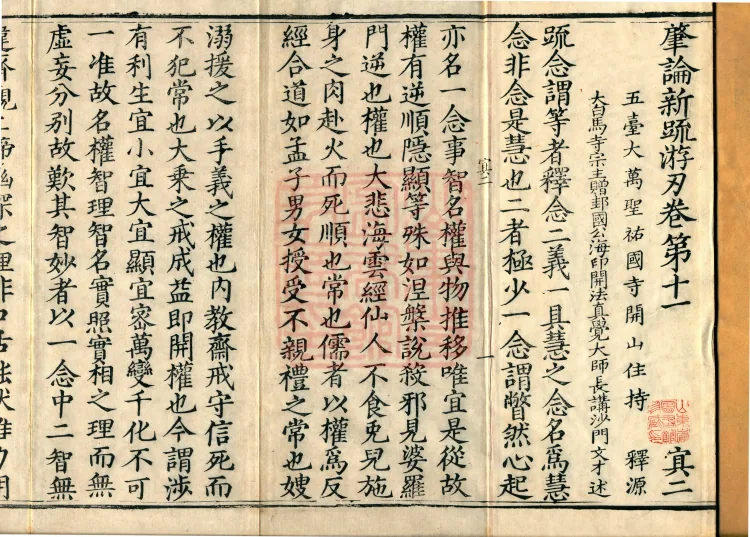 肇論新疏游刃卷第十一 寘二
五臺大萬聖祐國寺開山住持 釋源
大白馬寺宗主贈邽國公海印開法真覺大師長講沙門文才述
䟽念謂等者釋念二義一具慧之念名爲慧
念非念是慧也二者極少一念謂瞥然心起
寘二 一
亦名一念事智名權與物推移唯宜是從故
權有逆順隱顯等殊如涅槃說殺邪見婆羅
門逆也權也大悲海雲經仙人不食兎兒施
身之肉赴火而死順也常也儒者以權爲反
經合道如孟子男女授受不親禮之常也嫂
溺援之以手義之權也内教齋戒守信死而
不犯常也大乗之戒成益即開權也今謂涉
有利生宜小宜大宜顯宜宻萬變千化不可
一准故名權智理智名實照實相之理而無
虛妄分别故歎其智妙者以一念中二智無